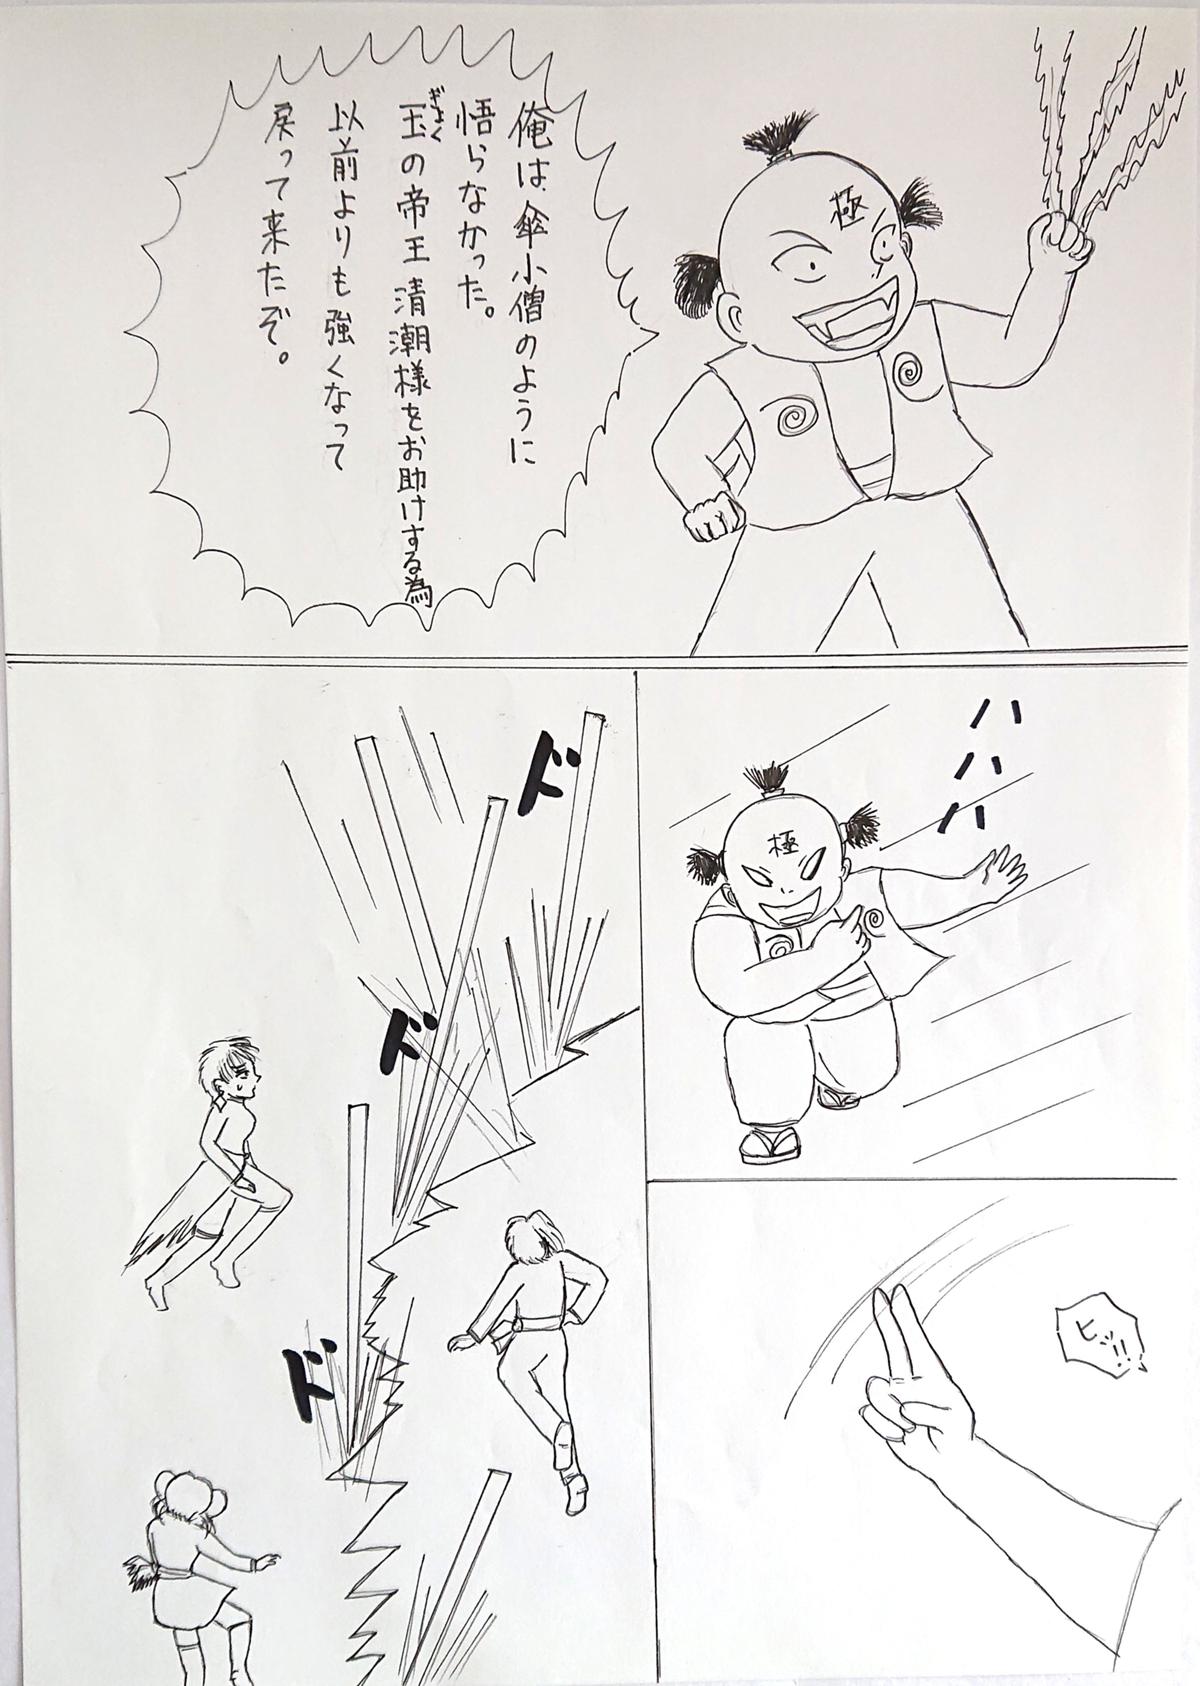 俺は、傘小僧のように
悟らなかった。
玉の帝王清潮様をお助けする為
ぎょく
以前よりも強くなって
戻って来たぞ。
極
ハ
ハ
ハ
極
ド
ド
ド
ヒッ!!